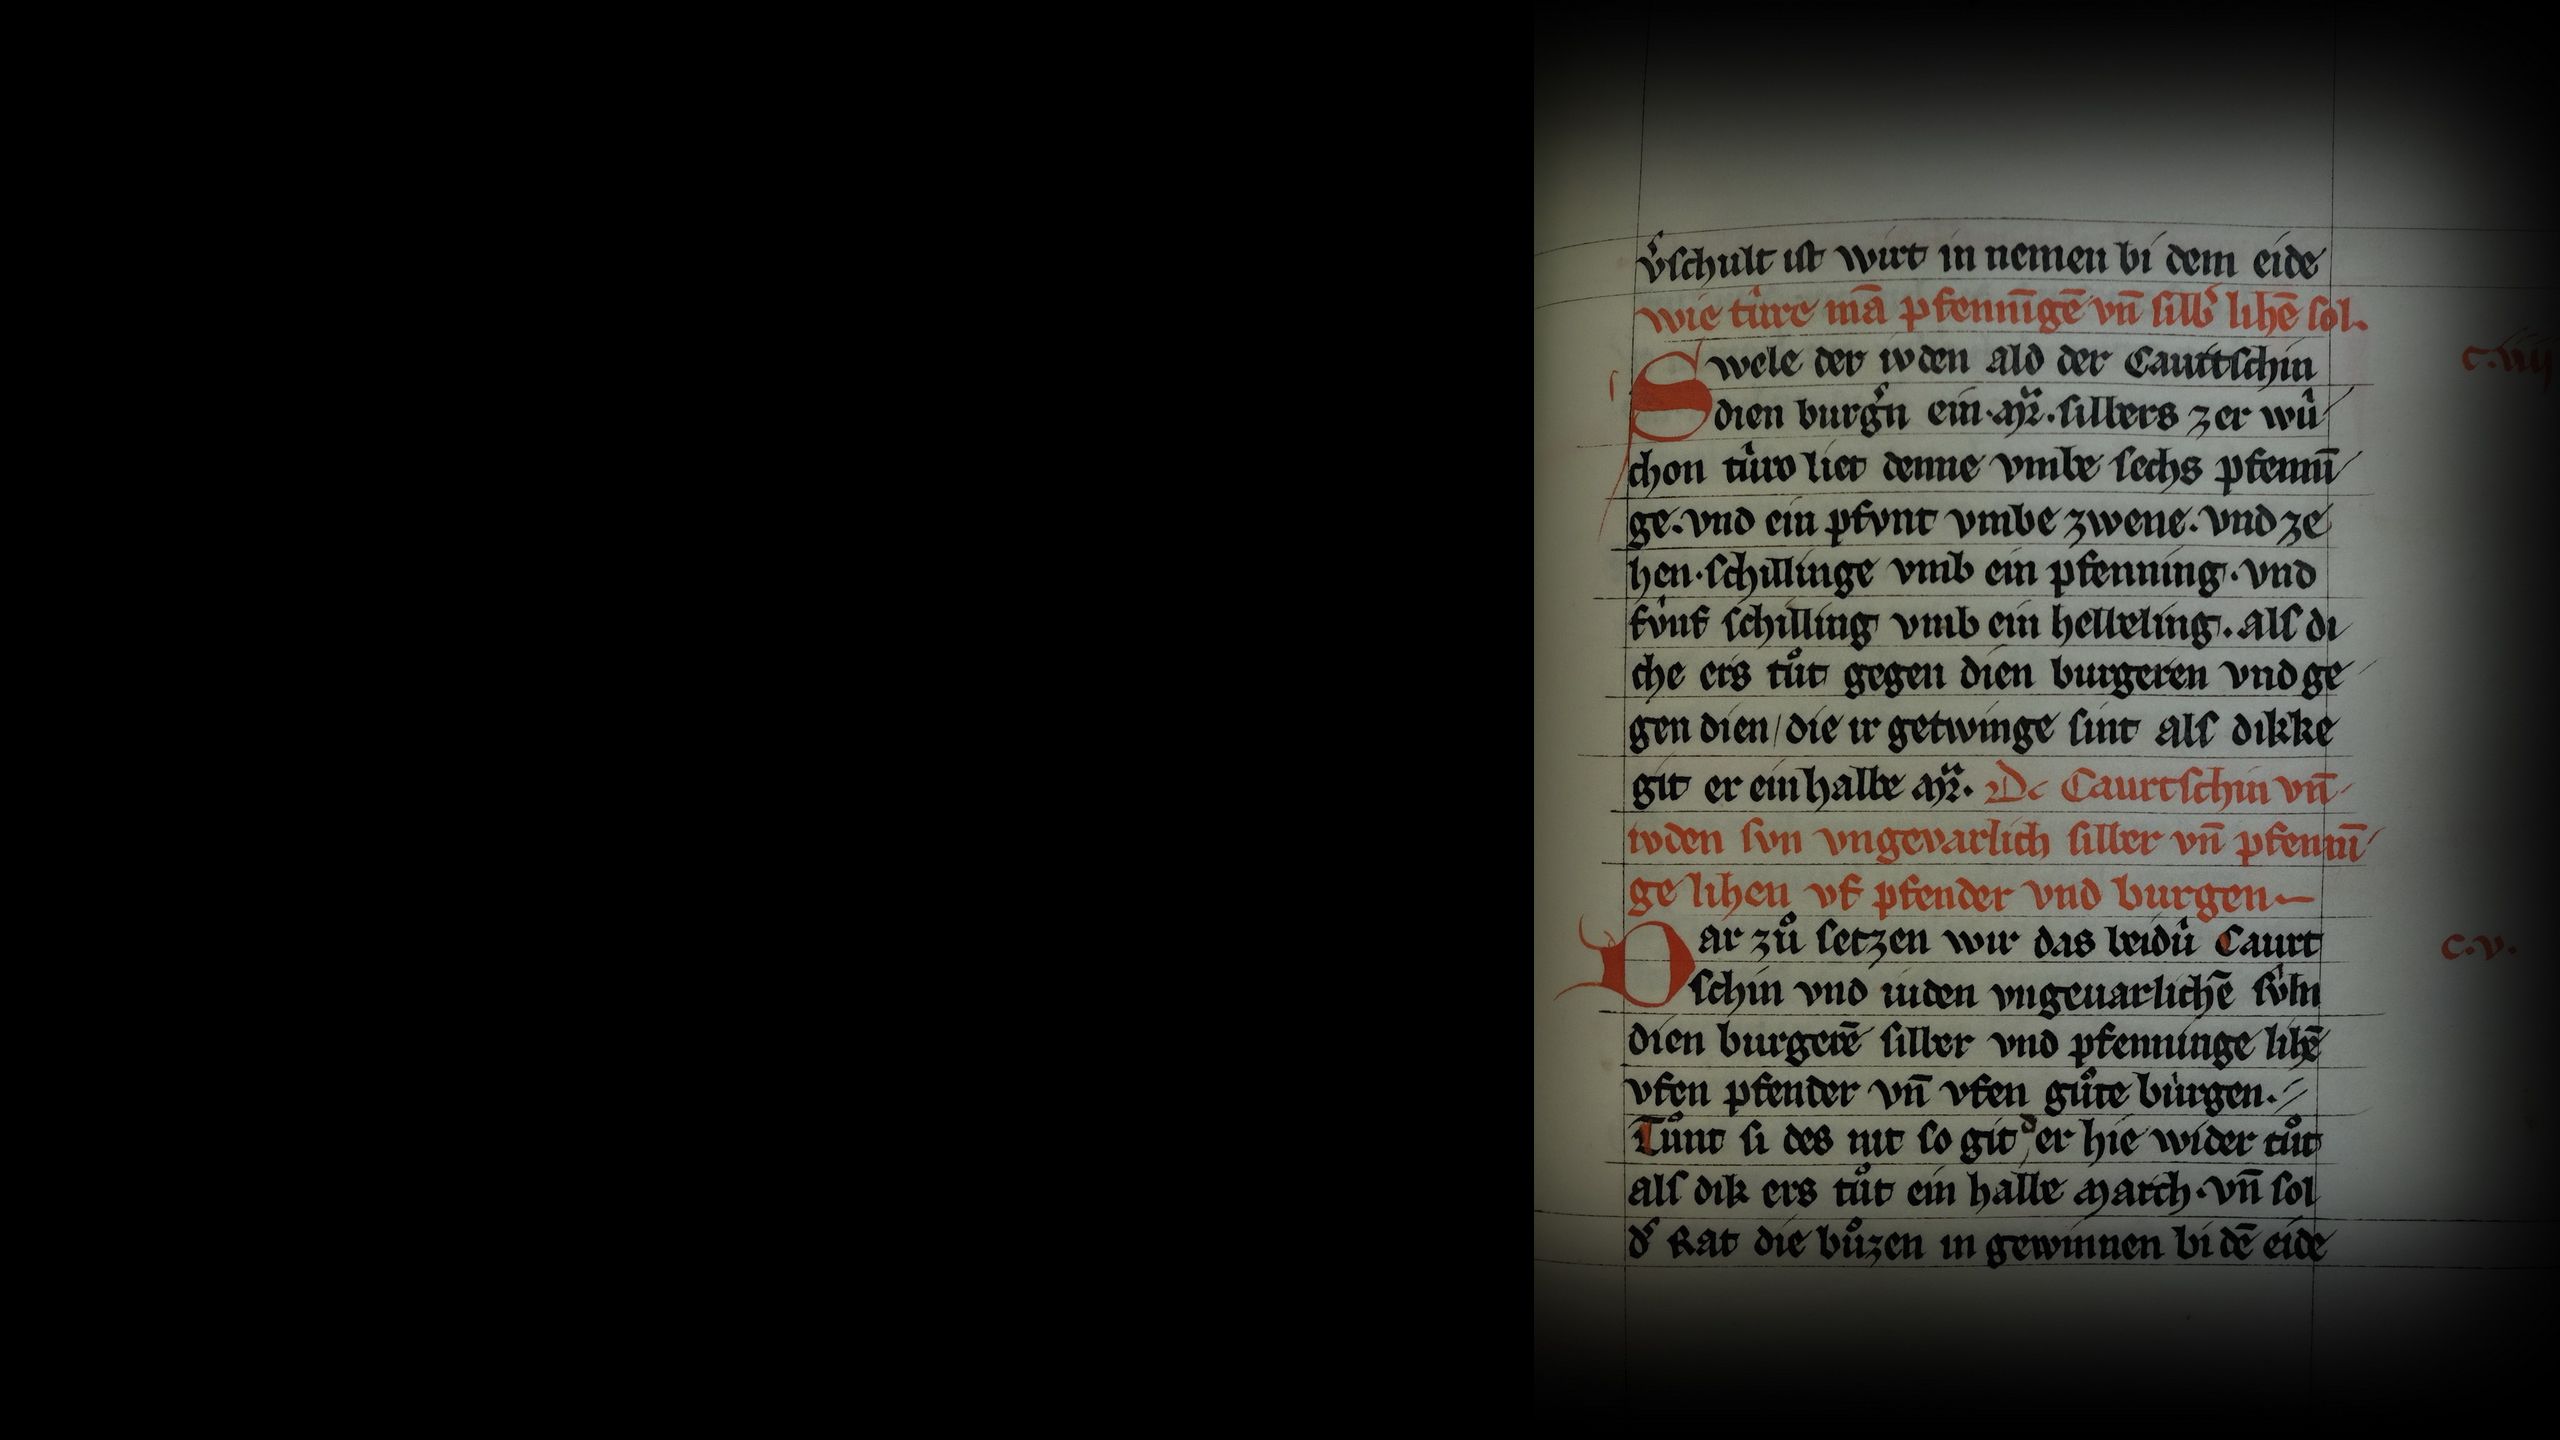 v͛schult ist wirt in nemen bi dem eide
wie tûre mā pfennīgē vn̄ silb͛ lihē sol.
c.iiij
Swele der ivden ald der Caurtschin
dien burg͛n ein. .silbers zer wů
chon tûro liet denne vmbe sechs pfenni̅
ge. vnd ein pfvnt vmbe zwene. vnd ze
hen. schillinge vmb ein pfenning. vnd
fv́nf schilling vmb ein helbeling. als di
che ers tůt gegen dien burgeren vnd ge
gen dien/die ir getwinge sint als dikke
git er ein halbe De Caurtschin vn̄
ivden svn vngevarlich silber vn̄ pfenni̅
ge lihen vf pfender vnd burgen
Dar zů setzen wir das beidû Caurt
c.v.
schin vnd iuden vngeuarlichē sv́ln
dien burgerē silber vnd pfenninge lihē
vfen pfender vn̄ vfen gůte bu̍rgen.
Tůnt si des nit so git ͩer hie wider tůt
als dik ers tůt ein halbe March. vn̄ sol
d͛ Rat die bůzen in gewinnen bi dē eide